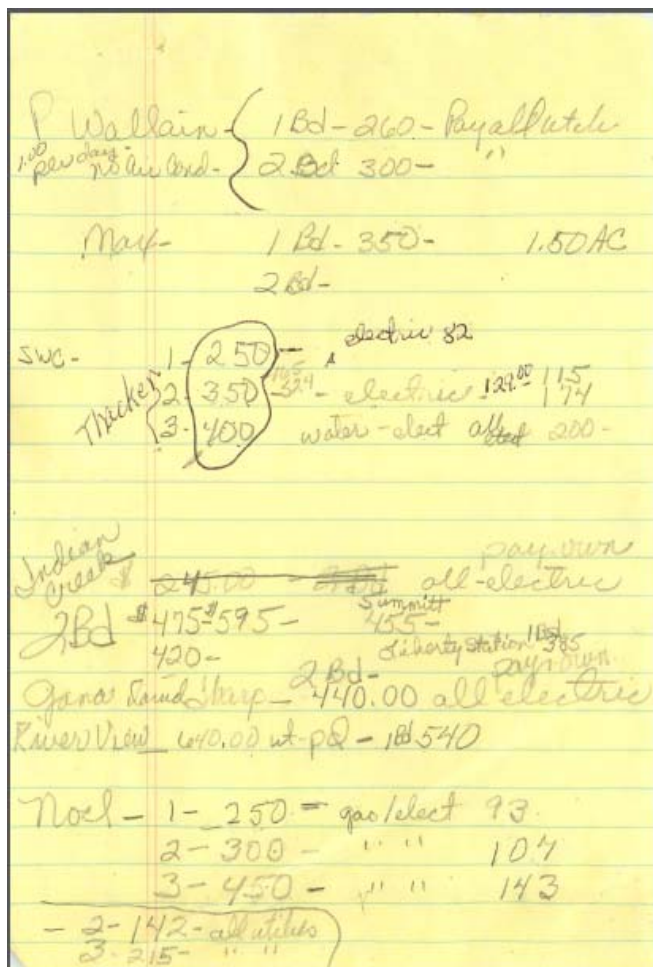 P Wallain - 1 Bd - 260 - Pay all utils
1.00 per day - No Air Cond - 2 Bd 300 - "
May - 1 Bd - 350 - 1.50 AC
2 Bd -
SWC - 1 - 250 - electric 82
Thicker 2 - 350 - electric - 129.00 115
174
3 - 400 water - elect 200 -
Indian Creek pay own
$ 245.00 - 2 Bd all-electric
2Bd $475 - $595 - Summitt 455 -
420 - Liberty Station 1 Bd 385
2 Bd - pay own
440.00 all electric
River View 640.00 wt-pd - 1 Bd 540
Noel - 1 - 250 = gas/elect 93
2 - 300 - " " 107
3 - 450 - " " 143
- 2 - 142 - all utilies
3 - 215 - " "